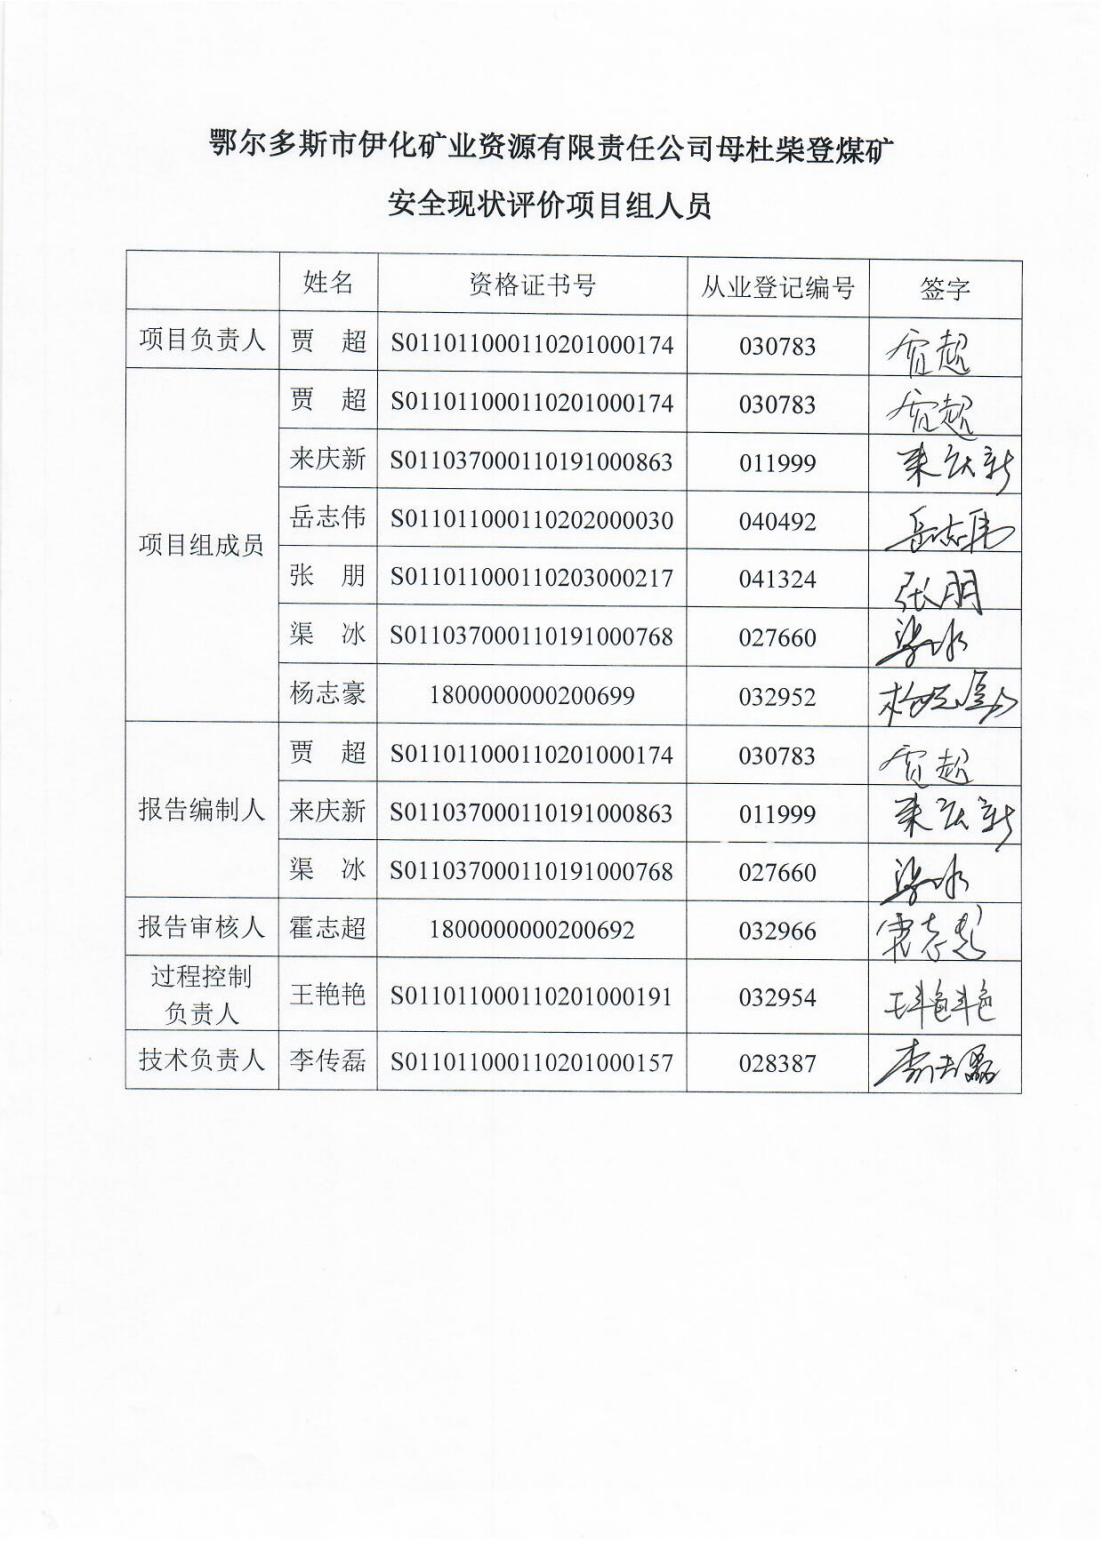 鄂尔多斯市伊化矿业资源有限责任公司母杜柴登煤矿
安全现状评价项目组人员
姓名 资格证书号 从业登记编号 签字
项目负责人 贾 超 S011011000110201000174 030783 贾超
项目组成员 贾 超 S011011000110201000174 030783 贾超
来庆新 S011037000110191000863 011999 来庆新
岳志伟 S011011000110202000030 040492 岳志伟
张 朋 S011011000110203000217 041324 张朋
渠 冰 S011037000110191000768 027660 渠冰
杨志豪 1800000000200699 032952 杨志豪
报告编制人 贾 超 S011011000110201000174 030783 贾超
来庆新 S011037000110191000863 011999 来庆新
渠 冰 S011037000110191000768 027660 渠冰
报告审核人 霍志超 1800000000200692 032966 霍志超
过程控制
负责人 王艳艳 S011011000110201000191 032954 王艳艳
技术负责人 李传磊 S011011000110201000157 028387 李传磊